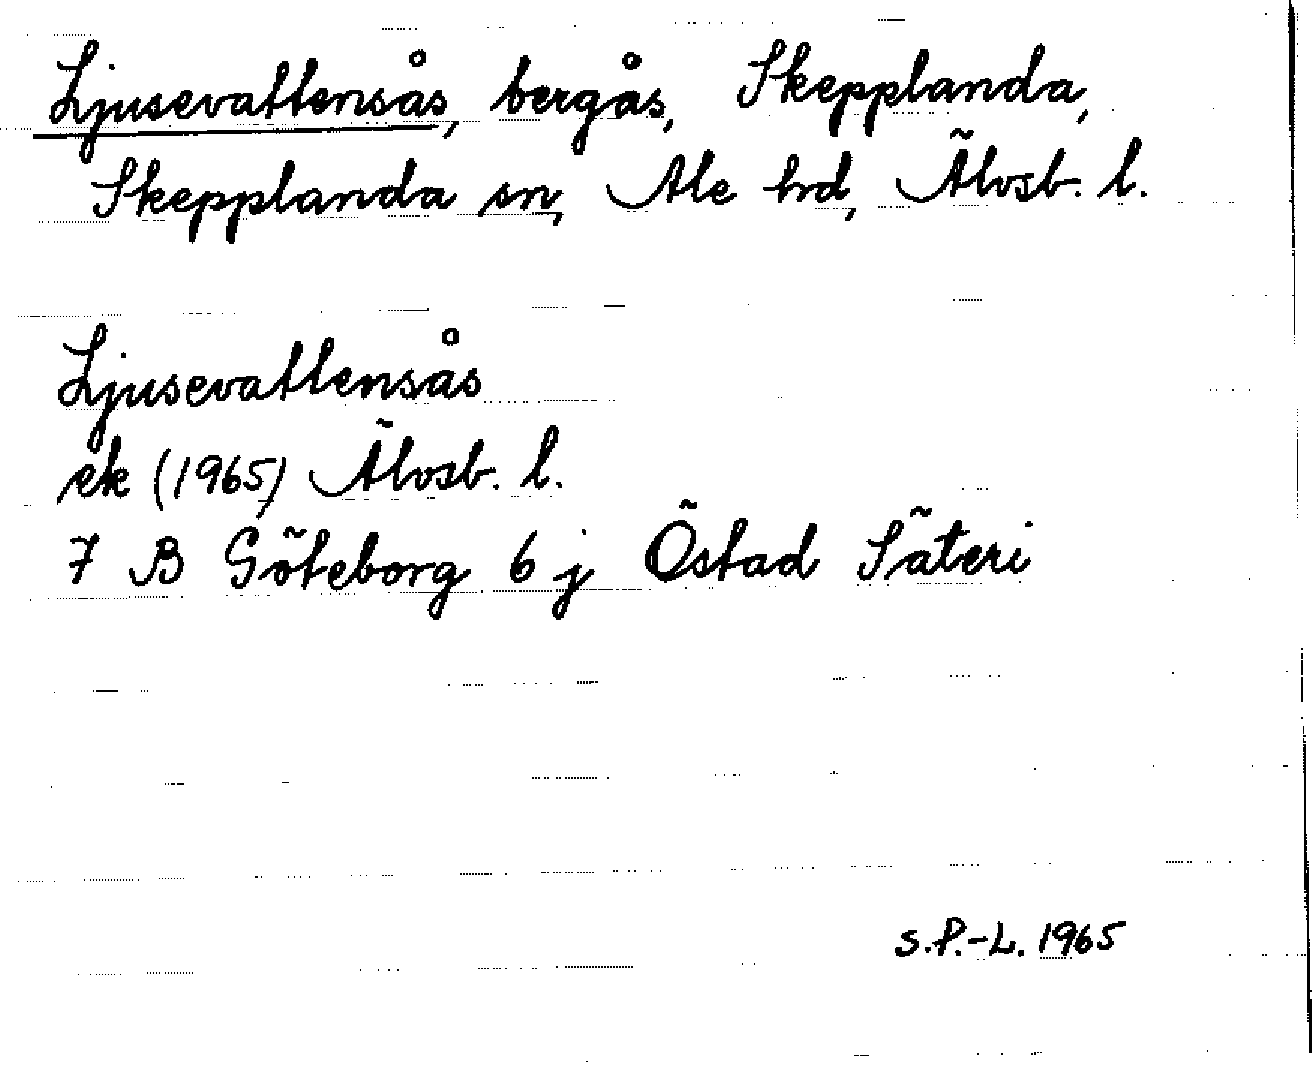 Ljusevattensås, bergås, Skepplanda,
Skepplanda sn, Ale hd, Älvsb. l.
Ljusevattensås
ek (1965) Älvsb. l.
7 B Göteborg 6 j Östad Säteri
S.P.-L. 1965